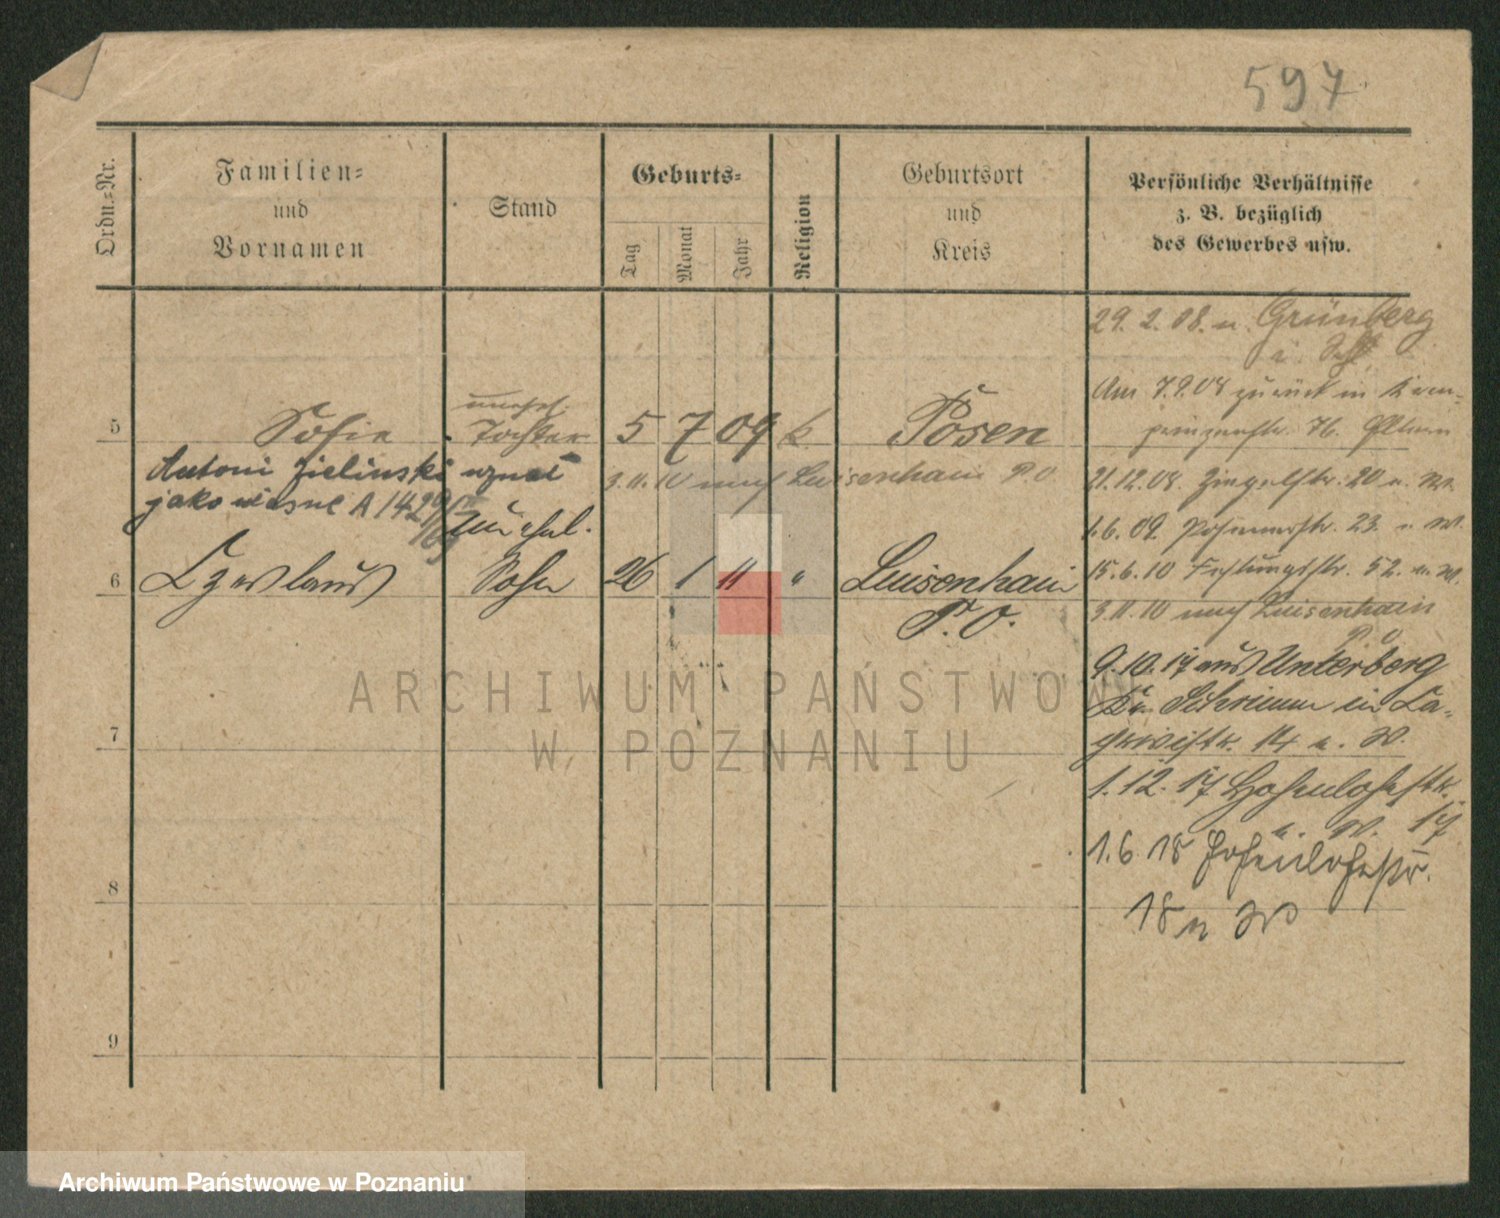 597
Ordn.-Nr.
Familien-
und
Vornamen
Stand
Geburts-
Tag
Monat
Jahr
Religion
Geburtsort
und
Kreis
Persönliche Verhältnisse
z. B. bezüglich
des Gewerbes usw.
29. 2. 08. n. Grünberg
i. Schl.
Am 7.9.08 zurück in
5 Sofie unehel. Tochter 5 7 09 k. Posen
Antoni Zielinski uznał
jako własne A 1429
3.11.10 nach Luisenhain P.O
21.12.08. Ziegelstr. 20 n. W.
1.6.09. Posenerstr. 23. n. W.
unehel.
6 Czeslaus Sohn 26 1 11 " Luisenhain
P. O.
15.6.10 Festungsstr. 52. n. W.
3.11.10 nach Luisenhain
P. O
9.10.17 aus Unterberg
Kr. Schrimm in
14 n. W.
7
1.12.17 Hohenlohestr.
n. W. 17
1.6.18 Hohenlohestr.
18 n W
8
9
ARCHIWUM PAŃSTWOWE
W POZNANIU
Archiwum Państwowe w Poznaniu